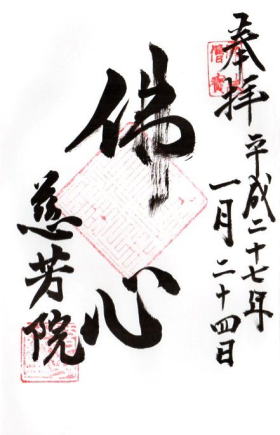 奉拝
平成二十七年
一月二十四日
佛心
慈芳院